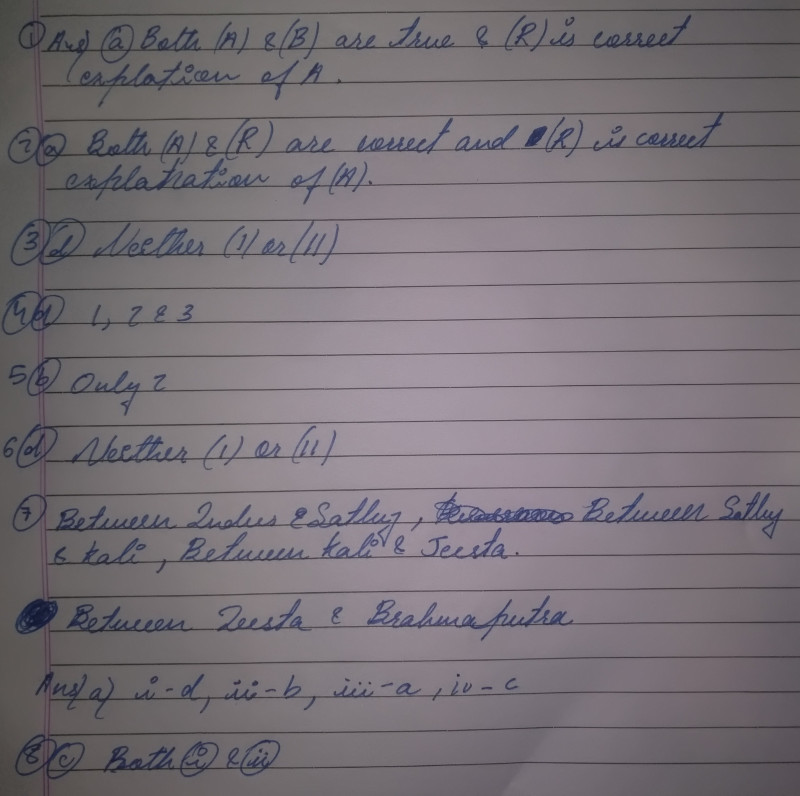 ① Ans) ⓐ Both (A) & (B) are true & (R) is correct
explation of A.
② ⓐ Both (A) & (R) are correct and (R) is correct
explanation of (A).
③ ⓓ Neither (I) or (II)
④ ⓓ 1, 2 & 3
5 ⓑ Only 2
6 ⓓ Neither (I) or (II)
⑦ Between Indus & Satluj, Between Satluj
& Kali, Between Kali & Teesta.
Between Teesta & Brahmaputra
Ans) a) i-d, ii-b, iii-a, iv-c
⑧ ⓒ Both ⓘ & (ii)